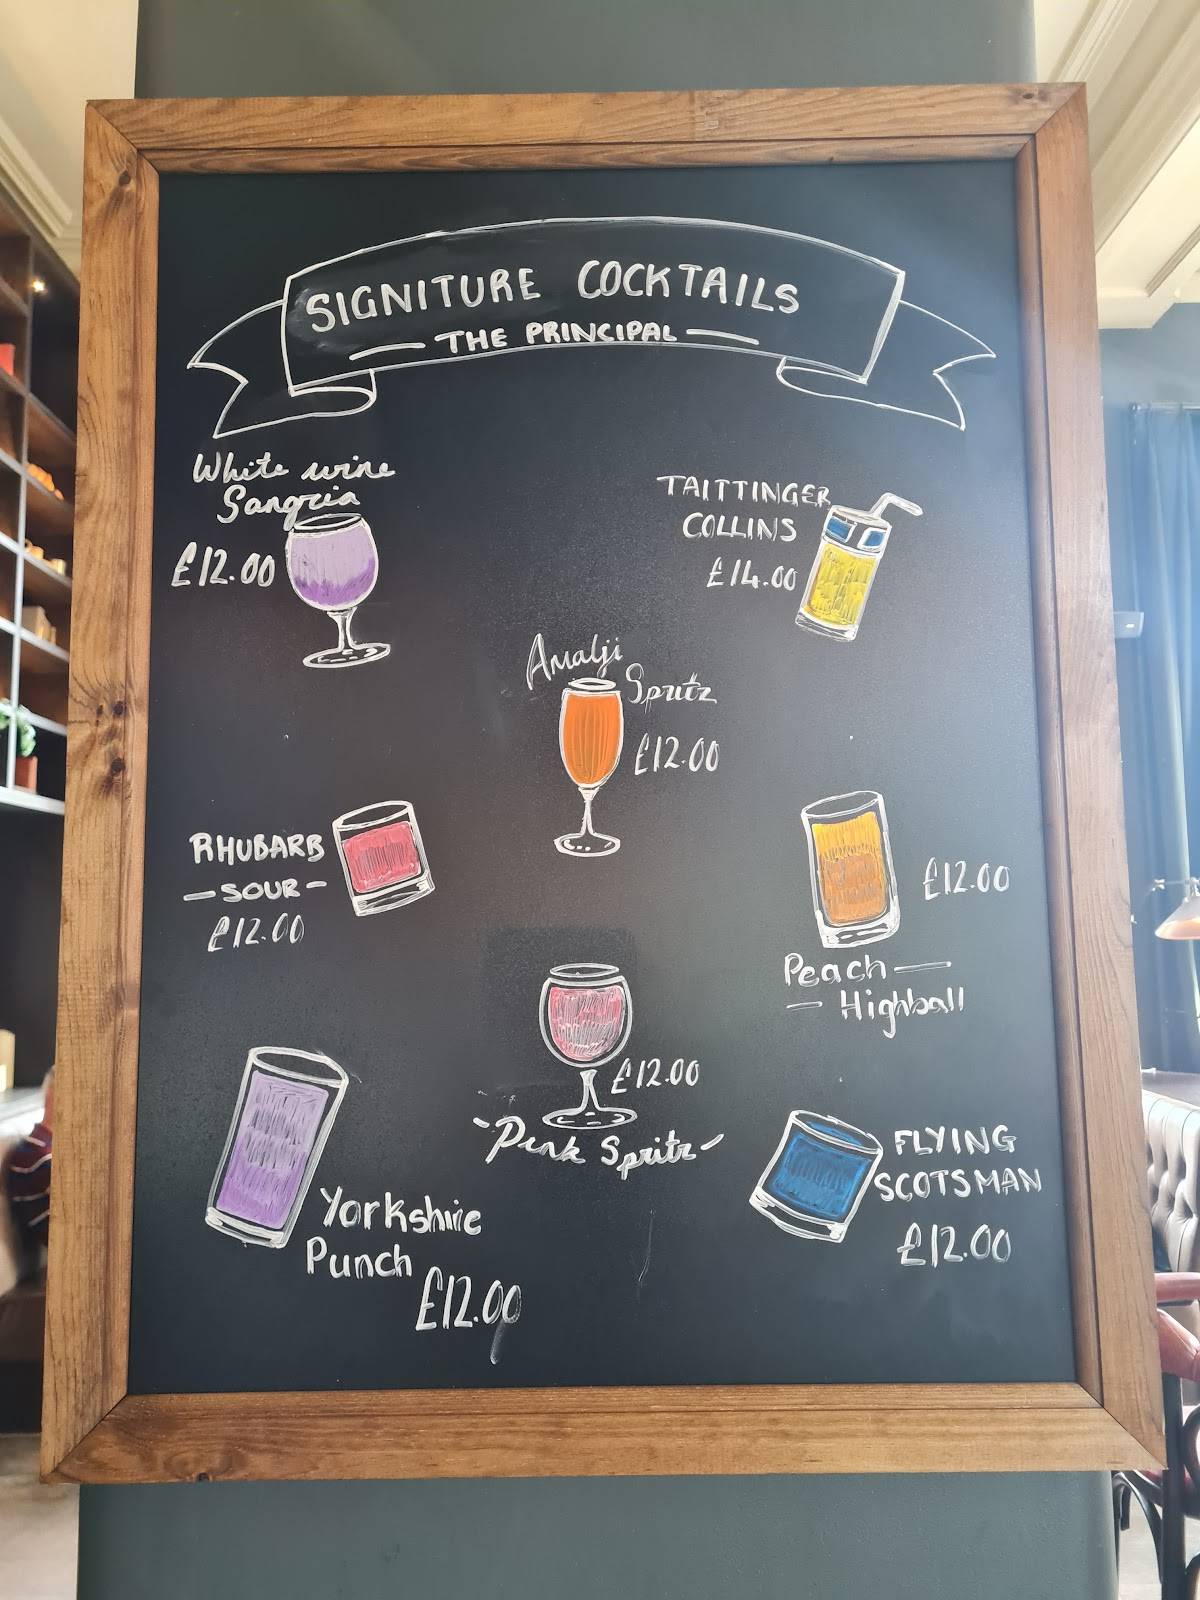 SIGNITURE COCKTAILS
THE PRINCIPAL
White wine
Sangria
£12.00
TAITTINGER
COLLINS
£14.00
Amalfi
Spritz
£12.00
RHUBARB
- SOUR -
£12.00
£12.00
Peach —
— Highball
£12.00
-Pink Spritz-
Yorkshire
Punch
£12.00
FLYING
SCOTSMAN
£12.00